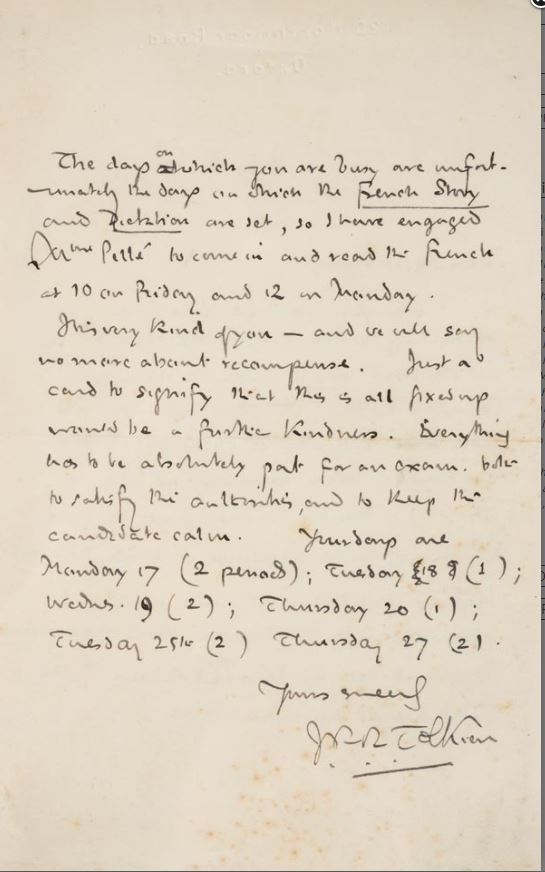 The days on which you are busy are unfort-
unately the days on which the French Story
and Dictation are set, so I have engaged
to come in and read the French
at 10 on Friday and 12 on Monday.
It is very kind of you — and we will say
no more about recompense. Just a
card to signify that this is all fixed up
would be a further kindness. Everything
has to be absolutely pat for an exam. both
to satisfy the authorities, and to keep the
candidate calm. Your days are
Monday 17 (2 periods); Tuesday 18 (1);
Wednes. 19 (2); Thursday 20 (1);
Tuesday 25th (2) Thursday 27 (2).
Yours sincerely
J R R Tolkien